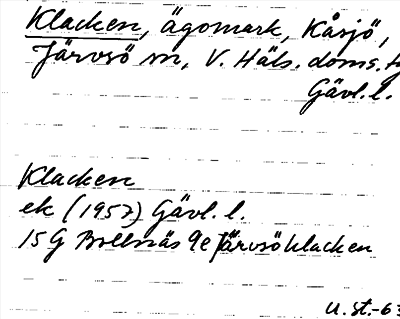 Klacken, ägomark, Kåsjö,
Järvsö sn, V. Häls. doms.
Gävl. l.
Klacken
ek (1957) Gävl. l.
15G Bollnäs 9e Järvsöklacken
u. st. -63